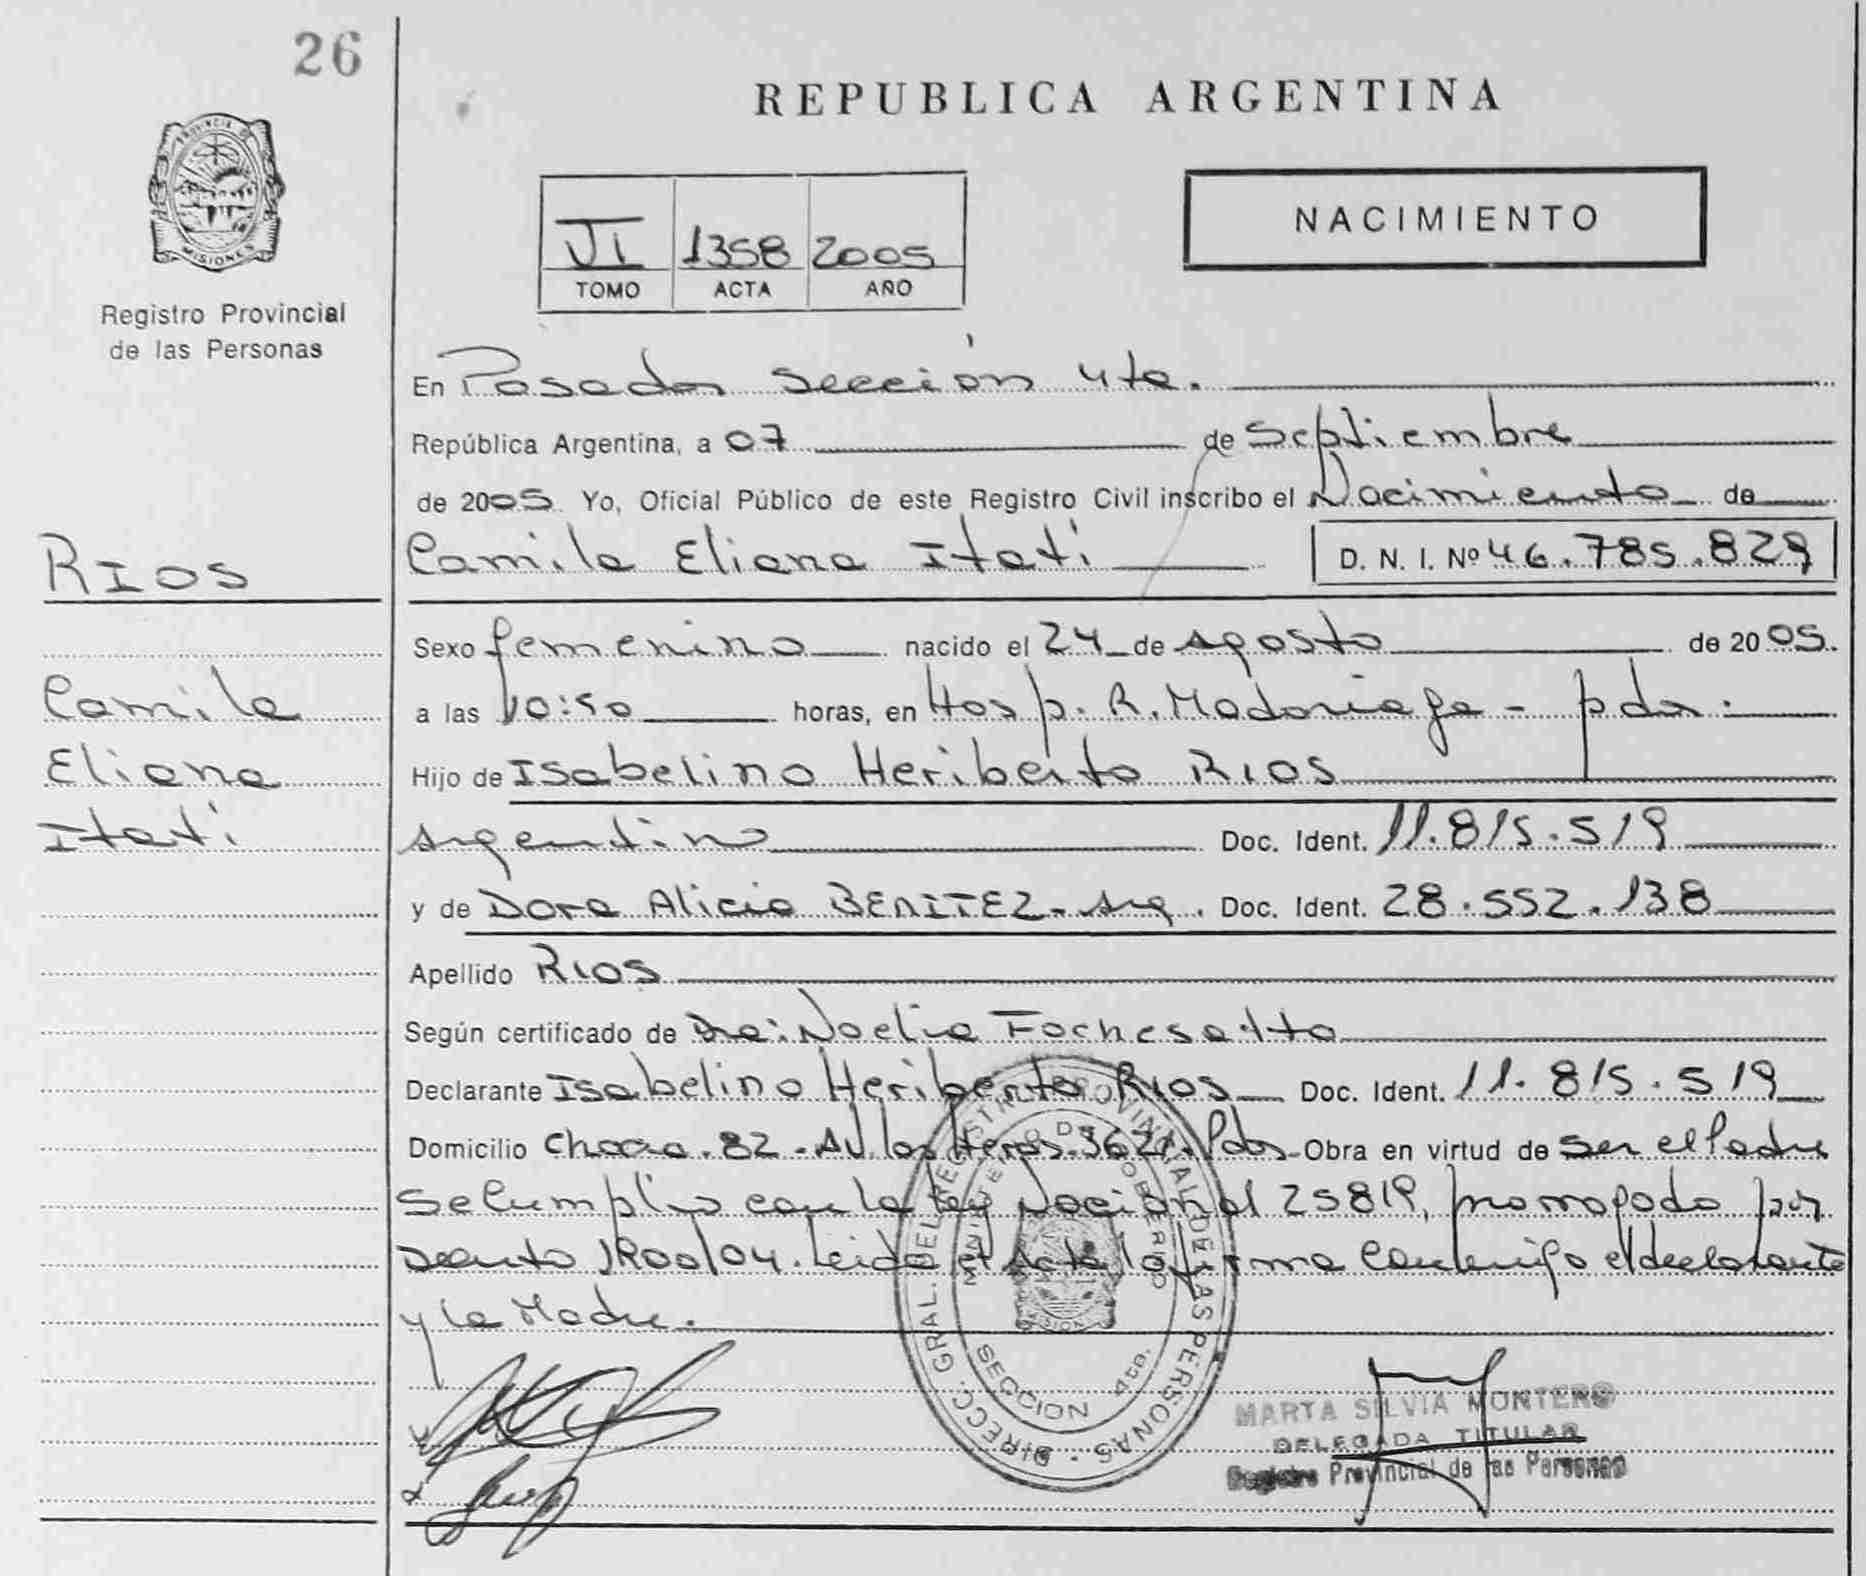 26
REPUBLICA ARGENTINA
PROVINCIA DE
MISIONES
Registro Provincial
de las Personas
VI 1358 2005
TOMO ACTA AÑO
NACIMIENTO
En Posadas sección 4ta.
República Argentina, a 07 de Septiembre
de 2005. Yo, Oficial Público de este Registro Civil inscribo el Nacimiento de
RIOS
Camila Eliana Itati D. N. I. Nº 46.785.829
Sexo femenino nacido el 24 de agosto de 2005.
Camila
a las 10:50 horas, en Hosp. R. Madariaga - pdas.
Eliana
Hijo de Isabelino Heriberto RIOS
Itati
argentino Doc. Ident. 11.815.519
y de Dora Alicia BENITEZ - arg. Doc. Ident. 28.552.138
Apellido RIOS
Según certificado de Dra: Noelia Fochesatto
Declarante Isabelino Heriberto RIOS Doc. Ident. 11.815.519
Domicilio Chacra. 82 - Av. las Heras. Pdas - Obra en virtud de ser el Padre
se cumplio con la ley Nacional 25819, prorrogado por
decreto 1800/04. Leida el Acta la firma conmigo el declarante
y la Madre.
DIRECC. GRAL. DEL REGISTRO PROVINCIAL DE LAS PERSONAS
MINISTERIO DE GOBIERNO
MISIONES
SECCION 4ta.
MARTA SILVIA MONTERO
DELEGADA TITULAR
Registro Provincial de las Personas